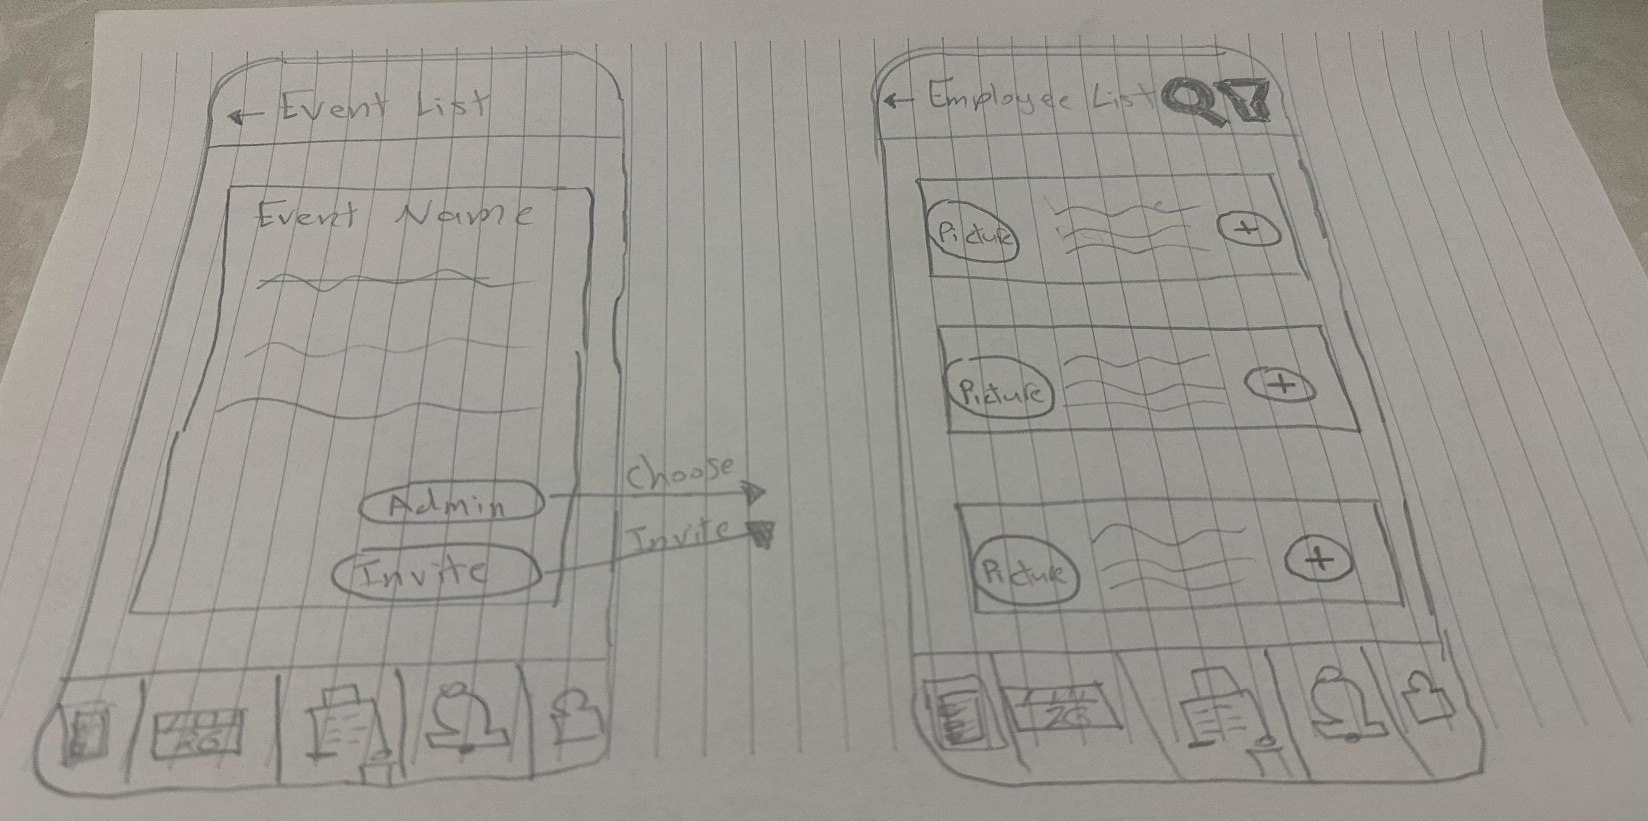 ← Event List
Event Name
Admin
Invite
Choose
Invite
← Employee List
Picture
+
Picture
+
Picture
+
26